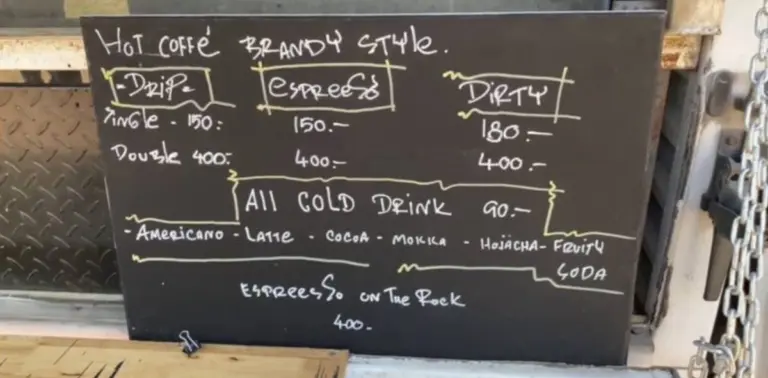 HOT COFFÉ BRANDY STYLE.
-DRIP- ESPREESSO DIRTY
SINGLE - 150.- 150.- 180.-
DOUBLE 400.- 400.- 400.-
All COLD DRINK 90.-
- AMERICANO - LATTE - COCOA - MOKKA - HOJACHA - FRUITY
SODA
ESPREESSO ON THE ROCK
400.-